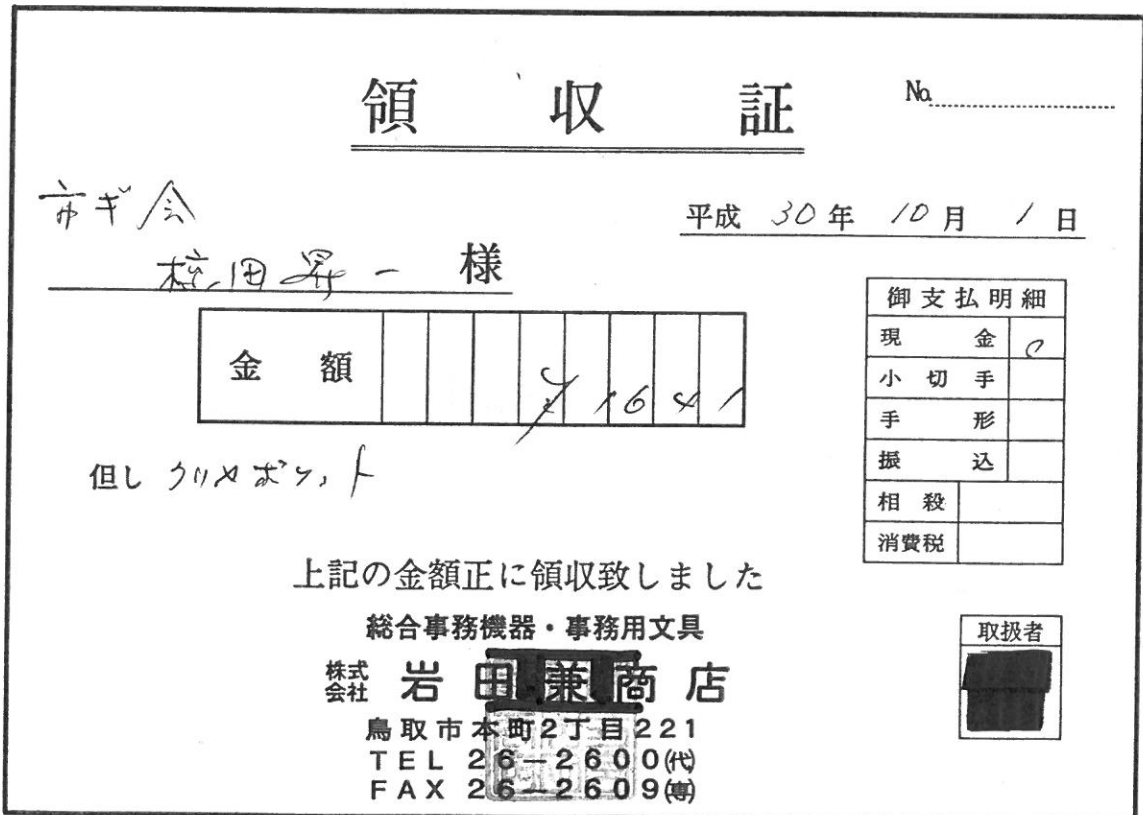 領収証
No.
市ギ会
平成 30年 10月 1日
椋田昇一 様
金額 ¥1641
但し クリヤポケット
御支払明細
現金 0
小切手
手形
振込
相殺
消費税
上記の金額正に領収致しました
総合事務機器・事務用文具
株式会社 岩田兼商店
鳥取市本町2丁目221
TEL 26-2600(代)
FAX 26-2609(専)
取扱者